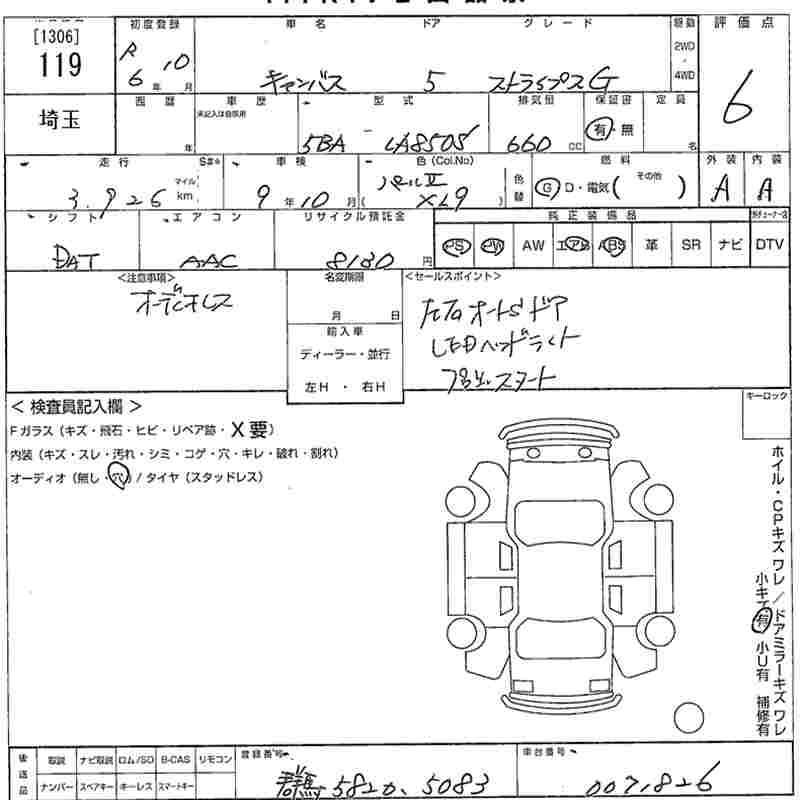 [1306]
119
埼玉
初度登録 車名 ドア グレード 駆動 評価点
R 6 年 10 月 キャンバス 5 ストライプス G 2WD ・ 4WD 6
西暦 車歴 型式 排気量 保証書 定員
年 未記入は自家用 5BA - LA850S 660 cc 有・無 名
走行 S#* 車検 色(Col.No) 燃料 外装 内装
3.926 マイル km 9 年 10 月 パールⅡ ( X29 ) 色替 G D・電気( その他 ) A A
シフト エアコン リサイクル預託金 純正装備品
DAT AAC 8180 円 PS PW AW エアB ABS 革 SR ナビ DTV
<注意事項> 名変期限 <セールスポイント>
オーディオレス
月 日
輸入車
ディーラー・並行
左H ・ 右H
左右オートSドア
LEDヘッドライト
スタート
< 検査員記入欄 >
Fガラス (キズ・飛石・ヒビ・リペア跡・X要)
内装 (キズ・スレ・汚れ・シミ・コゲ・穴・キレ・破れ・割れ)
オーディオ (無し・穴) / タイヤ (スタッドレス)
キーロック
ホイル・CPキズ ワレ / ドアミラーキズ ワレ
小キズ有 小U有 補修有
後送品 取説 ナビ取説 ロム/SD B-CAS リモコン 登録番号 車台番号
ナンバー スペアキー キーレス スマートキー 群馬 582か 5083 0071826